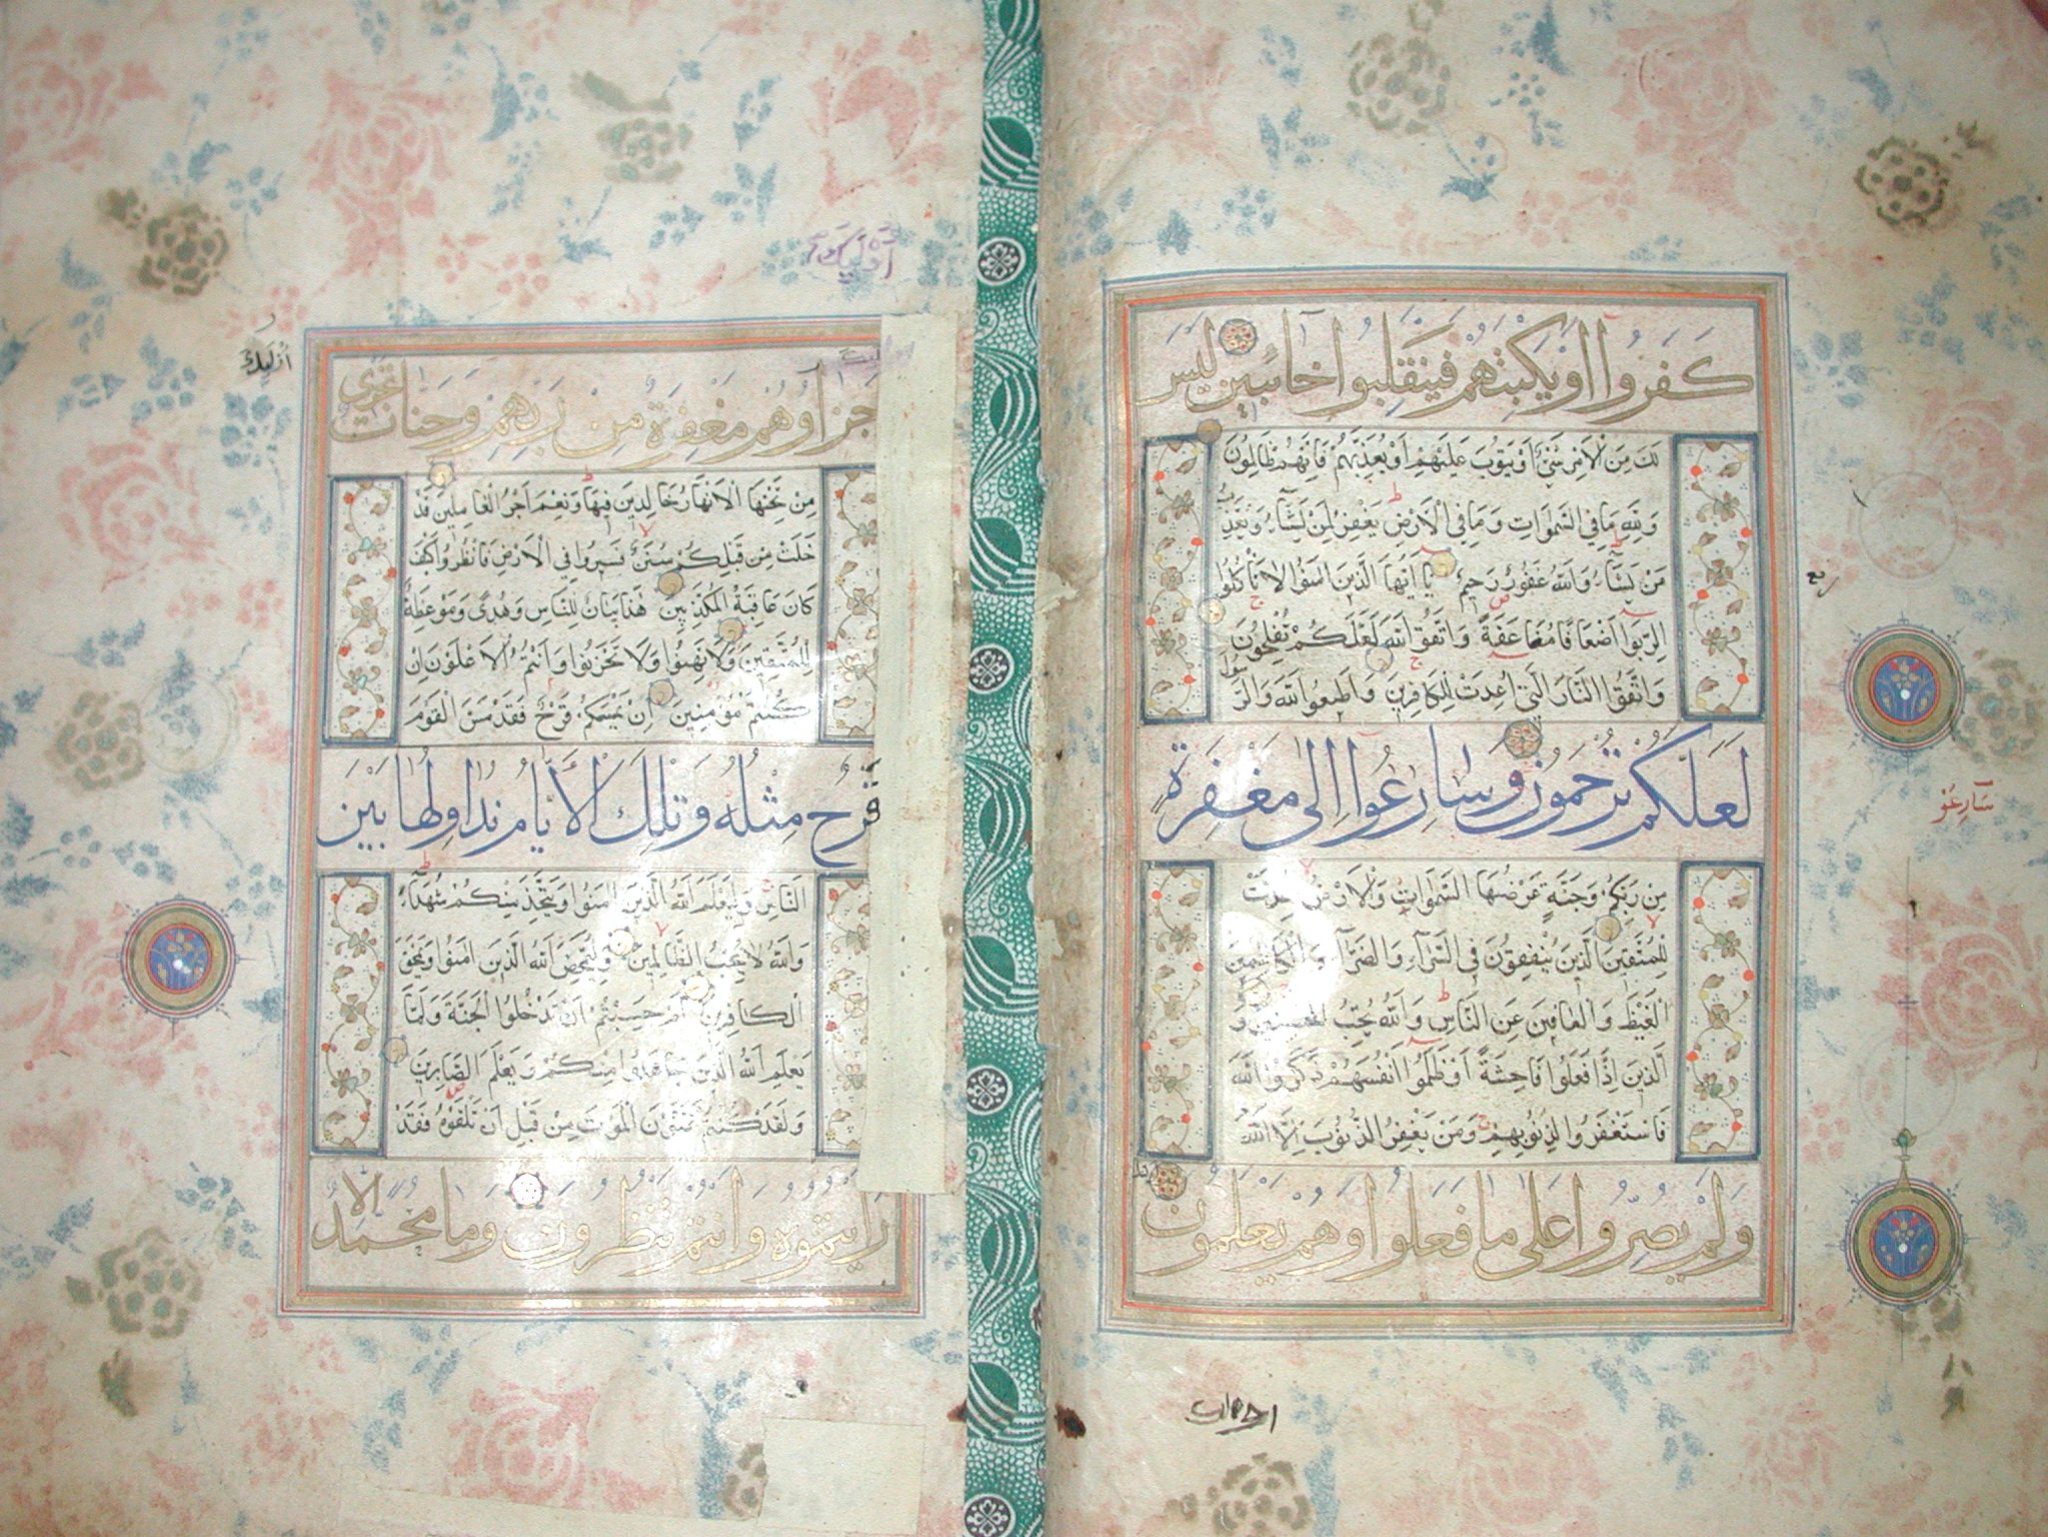 كَفَرُوا اَوْ يَكْبِتَهُمْ فَيَنْقَلِبُوا خَائِبِينَ لَيْسَ
لَكَ مِنَ الْاَمْرِ شَيْءٌ اَوْ يَتُوبَ عَلَيْهِمْ اَوْ يُعَذِّبَهُمْ فَاِنَّهُمْ ظَالِمُونَ
وَلِلّٰهِ مَا فِي السَّمٰوَاتِ وَمَا فِي الْاَرْضِ يَغْفِرُ لِمَنْ يَشَآءُ وَيُعَذِّبُ
مَنْ يَشَآءُ وَاللّٰهُ غَفُورٌ رَحِيمٌ يَا اَيُّهَا الَّذِينَ اٰمَنُوا لَا تَاْكُلُوا
الرِّبٰوا اَضْعَافًا مُضَاعَفَةً وَاتَّقُوا اللّٰهَ لَعَلَّكُمْ تُفْلِحُونَ
وَاتَّقُوا النَّارَ الَّتِي اُعِدَّتْ لِلْكَافِرِينَ وَاَطِيعُوا اللّٰهَ وَالرَّسُولَ
لَعَلَّكُمْ تُرْحَمُونَ وَسَارِعُوا اِلٰى مَغْفِرَةٍ
مِنْ رَبِّكُمْ وَجَنَّةٍ عَرْضُهَا السَّمٰوَاتُ وَالْاَرْضُ اُعِدَّتْ
لِلْمُتَّقِينَ الَّذِينَ يُنْفِقُونَ فِي السَّرَّآءِ وَالضَّرَّآءِ وَالْكَاظِمِينَ
الْغَيْظَ وَالْعَافِينَ عَنِ النَّاسِ وَاللّٰهُ يُحِبُّ الْمُحْسِنِينَ وَ
الَّذِينَ اِذَا فَعَلُوا فَاحِشَةً اَوْ ظَلَمُوا اَنْفُسَهُمْ ذَكَرُوا اللّٰهَ
فَاسْتَغْفَرُوا لِذُنُوبِهِمْ وَمَنْ يَغْفِرُ الذُّنُوبَ اِلَّا اللّٰهُ
وَلَمْ يُصِرُّوا عَلٰى مَا فَعَلُوا وَهُمْ يَعْلَمُونَ
ربع
سَارِعُوْ
اُولٰئِكَ
اُولٰئِكَ
جَزَاؤُهُمْ مَغْفِرَةٌ مِنْ رَبِّهِمْ وَجَنَّاتٌ تَجْرِي
مِنْ تَحْتِهَا الْاَنْهَارُ خَالِدِينَ فِيهَا وَنِعْمَ اَجْرُ الْعَامِلِينَ قَدْ
خَلَتْ مِنْ قَبْلِكُمْ سُنَنٌ فَسِيرُوا فِي الْاَرْضِ فَانْظُرُوا كَيْفَ
كَانَ عَاقِبَةُ الْمُكَذِّبِينَ هٰذَا بَيَانٌ لِلنَّاسِ وَهُدًى وَمَوْعِظَةٌ
لِلْمُتَّقِينَ وَلَا تَهِنُوا وَلَا تَحْزَنُوا وَاَنْتُمُ الْاَعْلَوْنَ اِنْ
كُنْتُمْ مُؤْمِنِينَ اِنْ يَمْسَسْكُمْ قَرْحٌ فَقَدْ مَسَّ الْقَوْمَ
قَرْحٌ مِثْلُهُ وَتِلْكَ الْاَيَّامُ نُدَاوِلُهَا بَيْنَ
النَّاسِ وَلِيَعْلَمَ اللّٰهُ الَّذِينَ اٰمَنُوا وَيَتَّخِذَ مِنْكُمْ شُهَدَآءَ
وَاللّٰهُ لَا يُحِبُّ الظَّالِمِينَ وَلِيُمَحِّصَ اللّٰهُ الَّذِينَ اٰمَنُوا وَيَمْحَقَ
الْكَافِرِينَ اَمْ حَسِبْتُمْ اَنْ تَدْخُلُوا الْجَنَّةَ وَلَمَّا
يَعْلَمِ اللّٰهُ الَّذِينَ جَاهَدُوا مِنْكُمْ وَيَعْلَمَ الصَّابِرِينَ
وَلَقَدْ كُنْتُمْ تَمَنَّوْنَ الْمَوْتَ مِنْ قَبْلِ اَنْ تَلْقَوْهُ فَقَدْ
رَاَيْتُمُوهُ وَاَنْتُمْ تَنْظُرُونَ وَمَا مُحَمَّدٌ اِلَّا